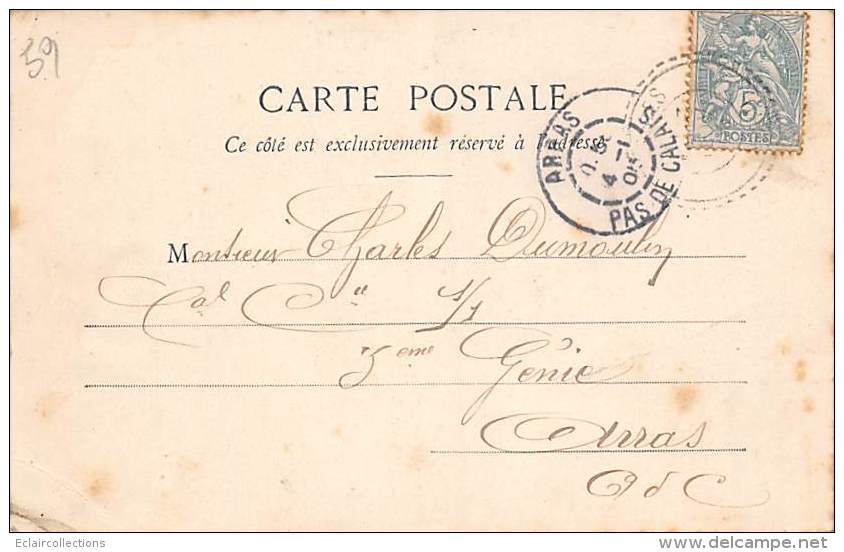 59
CARTE POSTALE
Ce côté est exclusivement réservé à l'adresse
ARRAS
4 -11
05
PAS DE CALAIS
5
POSTES
Monsieur Charles Dumoulin
Cal Cie 1/1
3eme Génie
Arras
P d C
Eclaircollections
www.delcampe.net